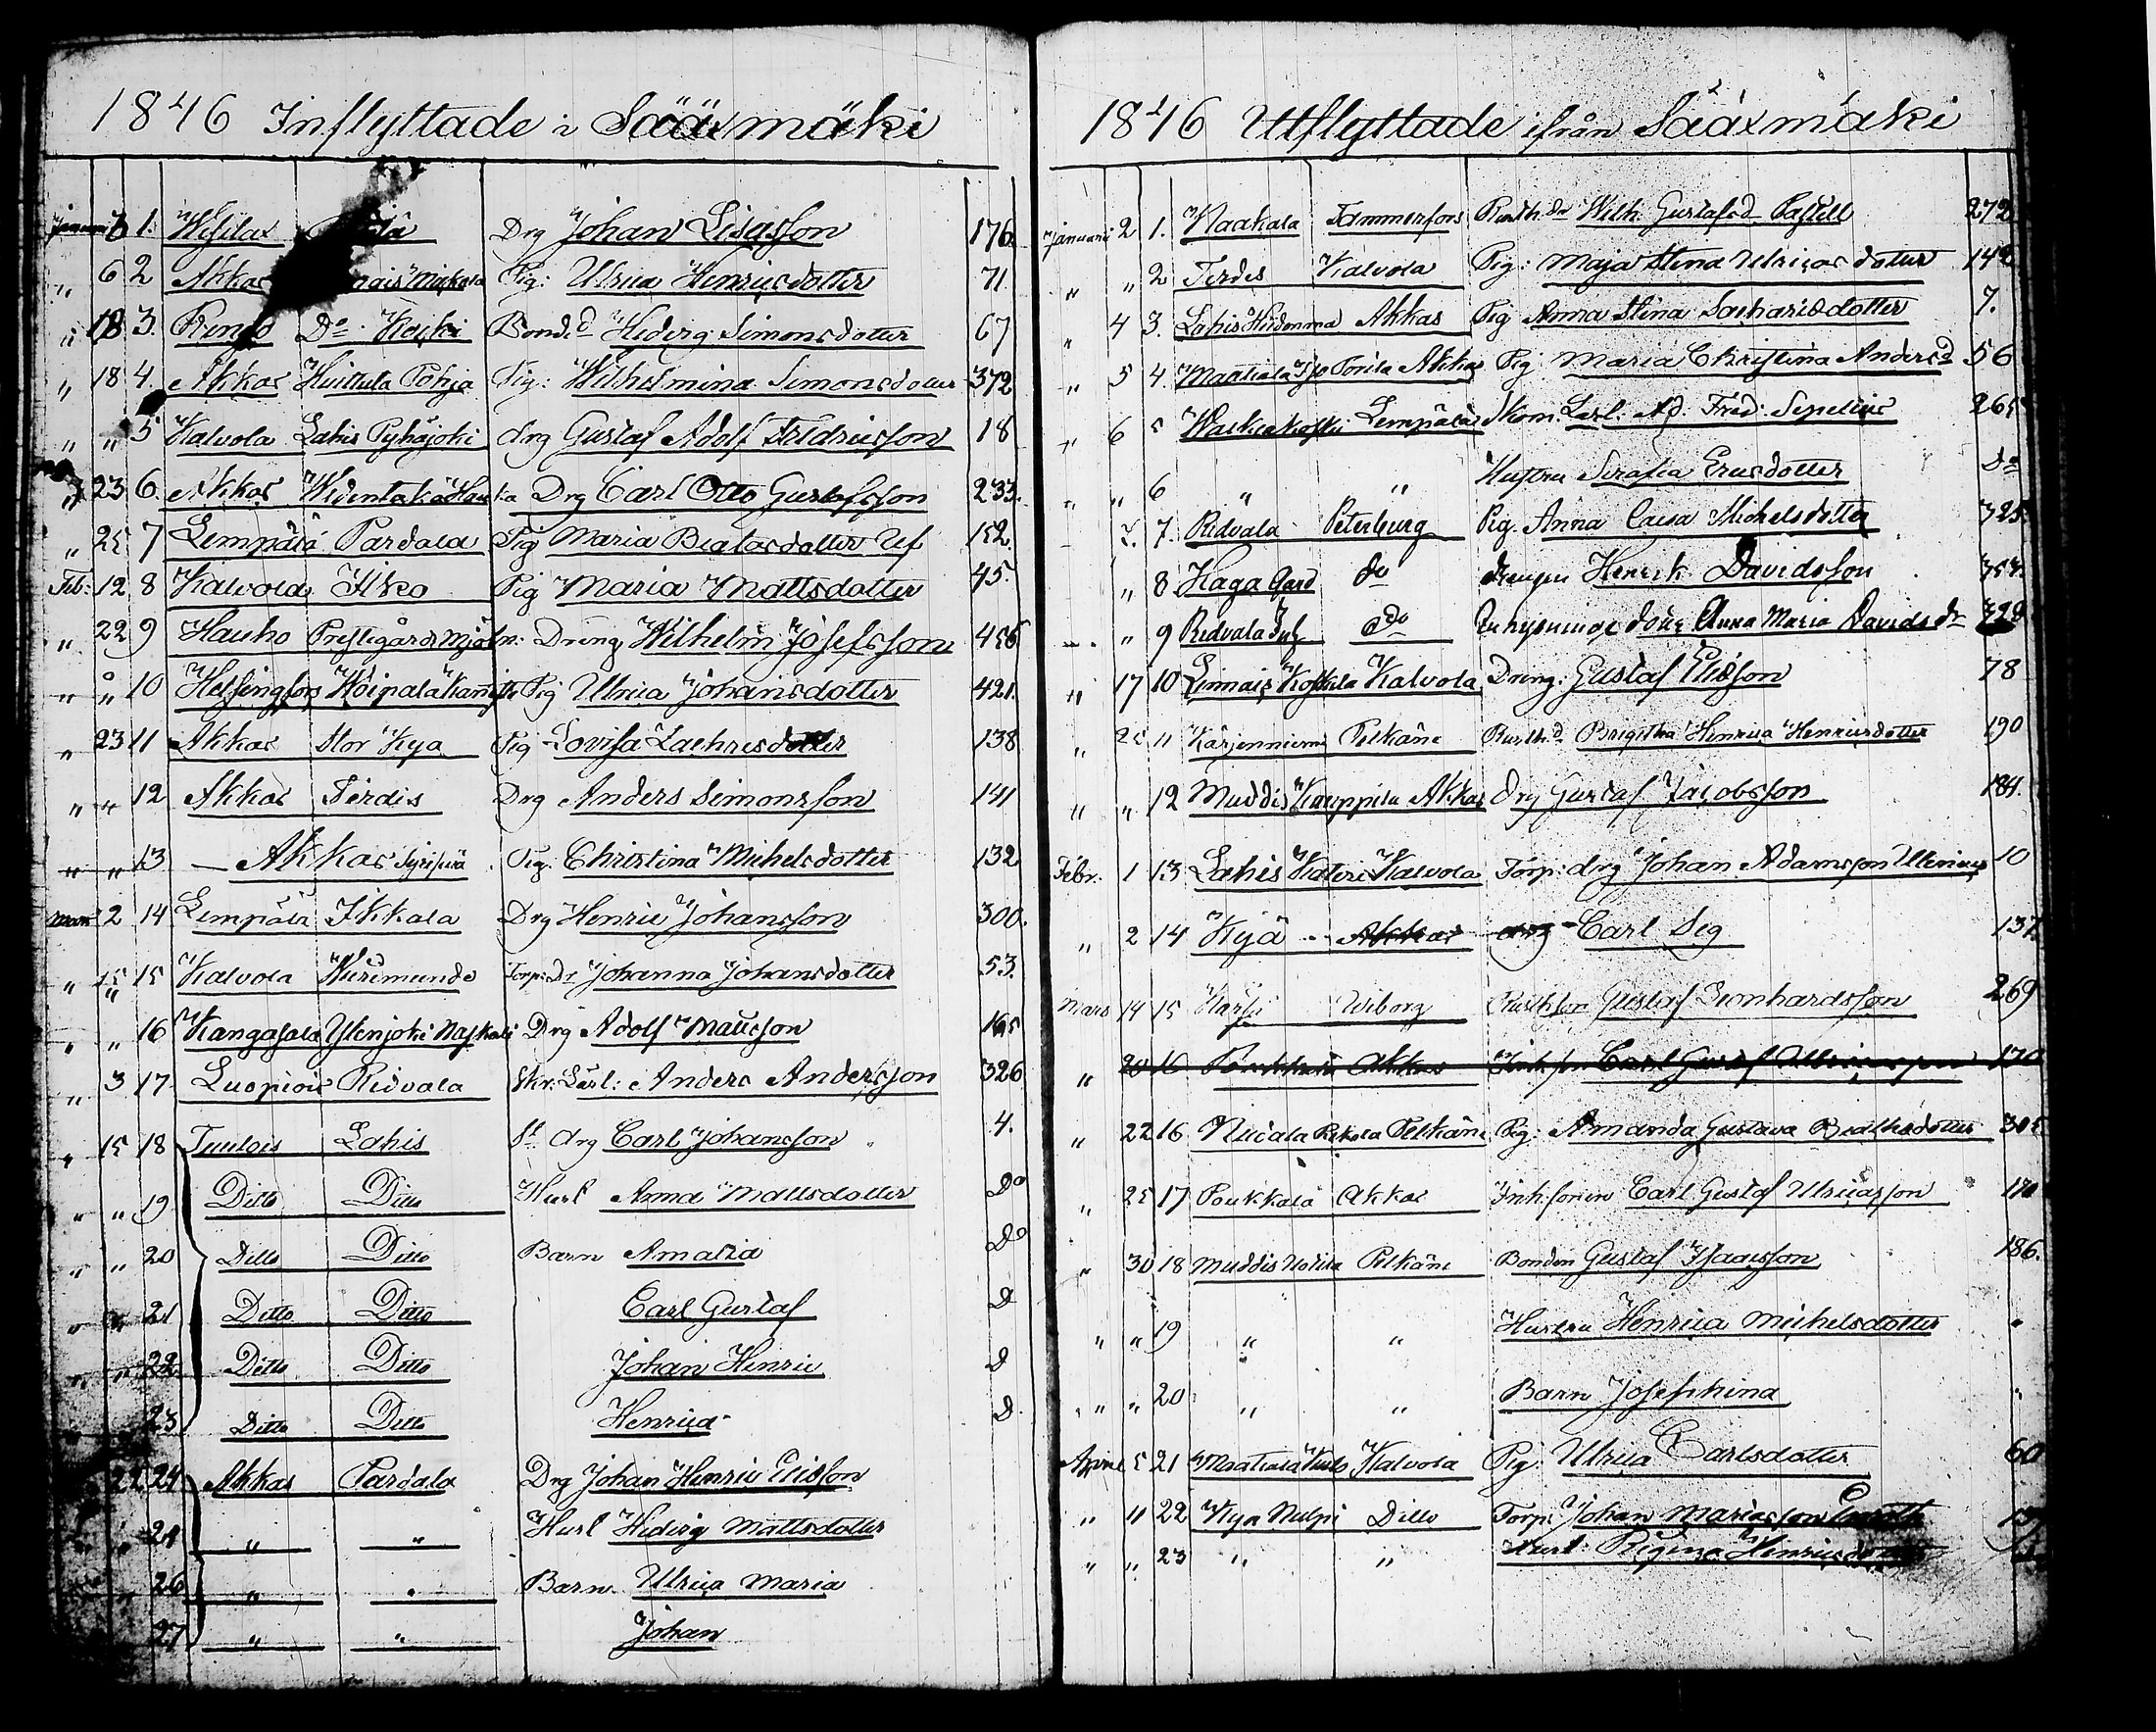 1846 Inflyttade i Sääxmäki
Januari 6 1. Wesilax Drg Johan Lisasson 176
" 6 2 Akkas Pig: Ulrica Henricsdotter 71
" 18 3. Do Bond:d Hedvig Simonsdotter 67
" 18 4. Akkas Huittula Pohja Pig: Wilhelmina Simonsdotter 372
" " 5 Kalvola Lahis Pyhäjoki drg Gustaf Adolf Fredricsson 18
" 23 6. Akkas Drg Carl Otto Gustafsson 233.
" 25 7 Lempälä Pardala Pig Maria Beatasdotter 152.
Feb: 12 8 Kalvola Ilko Pig Maria Mattsdotter 45.
" 22 9 Hauho Dreng Wilhelm Josefsson 456
" " 10 Helsingfors Pig Ulrica Johansdotter 421.
" 23 11 Akkas Stor Kya Pig Lovisa Zachrisdotter 138
" " 12 Akkas Ferdis Drg Anders Simonsson 141
" " 13 Akkas Pig. Christina Michelsdotter 132
Mars 2 14 Lempälä Ikkala Drg Henric Johansson 300.
" 15 15 Kalvola Torp: Dr Johanna Johansdotter 53.
" " 16 Kangasala Drg Adolf Mattsson
" 3 17 Luopiois Ridvala Skr: Lärl: Anders Andersson 326
" 15 18 Tuulois Lahis drg Carl Johansson 4.
" " 19 Ditto Ditto Hust Anna Mattsdotter Do
" " 20 Ditto Ditto Barn Amalia Do
" " 21 Ditto Ditto Carl Gustaf D
" " 22 Ditto Ditto Johan Henric D
23 Ditto Ditto Henrica D.
22 24 Akkas Pardala Drg Johan Henric Elisson
" " " Hust Hedvig Mattsdotter
26 " " Barn Ulrica Maria
27 " " Johan
1846 Utflyttade ifrån Sääxmäki
Januari 2 1. Naakala Tammerfors Rusth:dr Wilh. Gustafsd 272
" " 2 Ferdis Kalvola Pig: Maja Stina Ulricasdotter 142
" 4 3. Lahis Akkas Pig Anna Stina Sacharisdotter 7.
" 5 4. Akkas Pig Maria Christina Andersd 56
" 6 5 Lempälä Skom. Lärl. Ad. Fred. Sepelius 265
" " 6 " " Hustru Serafia Ericsdotter Do
7. 7. Ridvala Peterburg Pig. Anna Caisa Michelsdotter 325
" 8 Haga Gard do drengen Henrik Davidsson
" 9 Ridvala do Anna Maria Davidsdr 328
" 17 10 Linnais Koskela Kalvola Dreng: Gustaf Elisson 78
" 25 11 Kärjenniemi Pelkäne Rusth:dr Brigitha Henrica Henricsdotter 190
" " 12 Muddis Kauppila Akkas drg Gustaf Jacobsson 184.
Febr. 1 13 Lahis Kalvola Torp: drg Johan Adamsson 10
" 2 14 Kyä Akkas drg Carl Seg 137.
Mars 14 15 Wiborg Rusthson Gustaf Leonhardsson 269
" 20 16 Akkas Carl Gustaf 170
" 22 16 Pelkäne Pig: Amanda Gustava 305
" 25 17 Poukkala Akkas Inh: sonen Carl Gustaf Ulricasson 170
" 30 18 Muddis Pelkäne Bonden Gustaf Isaacsson 186.
" " 19 " " Hustru Henrica Michelsdotter "
" " 20 " " Barn Josephina "
April 5 21 Kalvola Pig: Ulrica Carlsdotter 60
" 11 22 Kya Ditto Torp: Johan Mariasson
" " 23 " " Hust: Regina